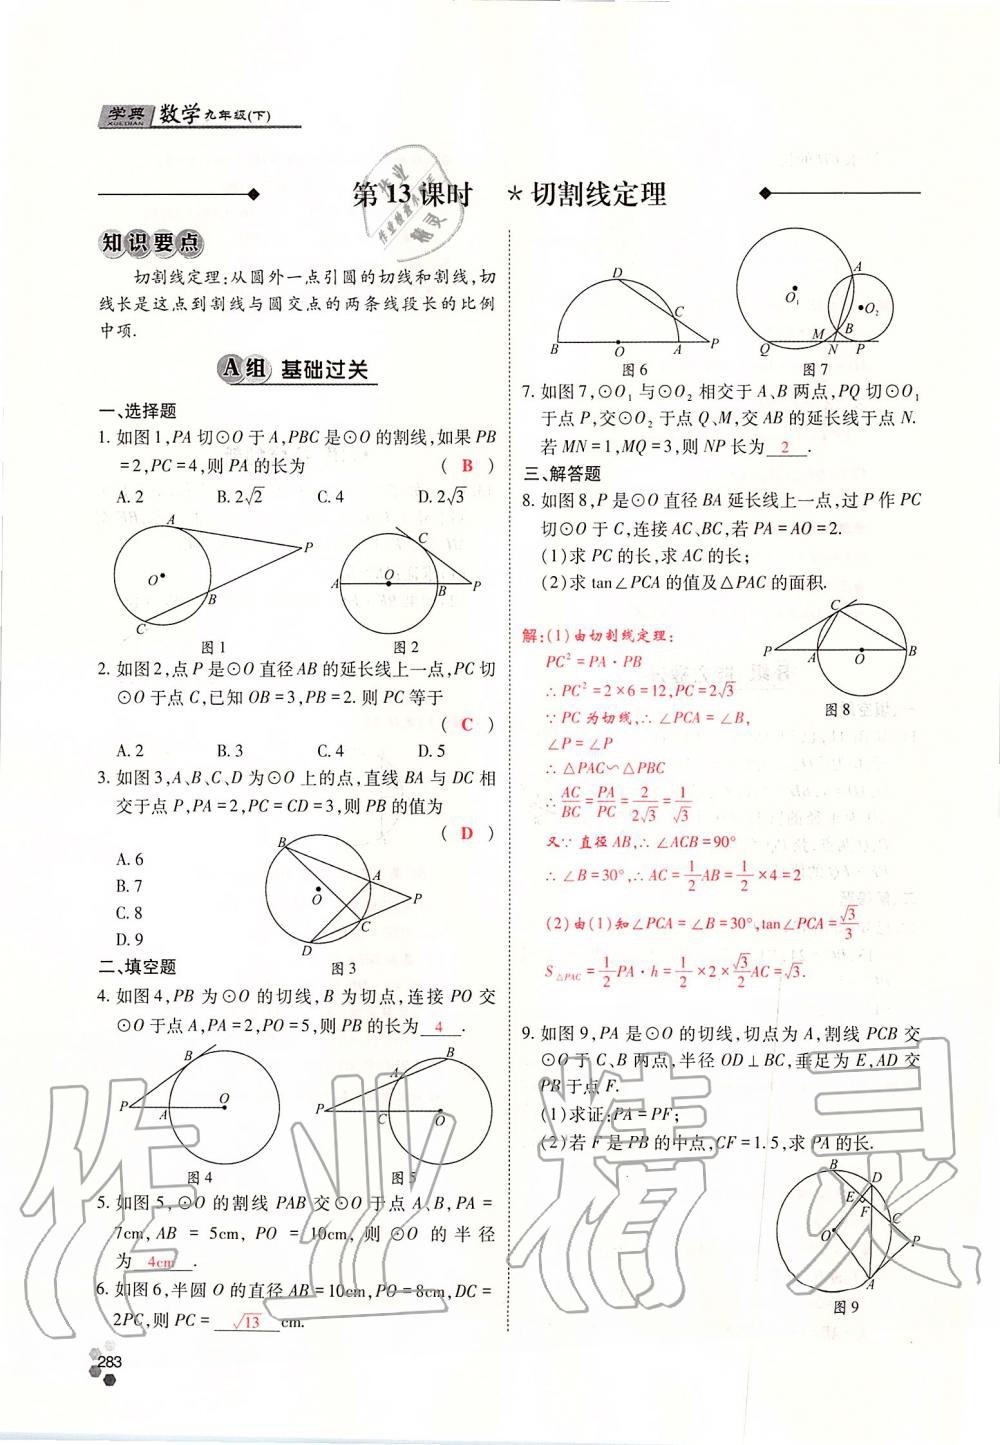 学典 数学九年级(下)
XUEDIAN
第13课时 *切割线定理
知识要点
切割线定理:从圆外一点引圆的切线和割线,切
线长是这点到割线与圆交点的两条线段长的比例
中项.
A组 基础过关
一、选择题
1. 如图1,PA切⊙O于A,PBC是⊙O的割线,如果PB
=2,PC=4,则PA的长为 ( B )
A. 2 B. 2√2 C. 4 D. 2√3
A
P
O
B
C
图1
C
O
A B P
图2
2. 如图2,点P是⊙O直径AB的延长线上一点,PC切
⊙O于点C,已知OB=3,PB=2. 则PC等于
( C )
A. 2 B. 3 C. 4 D. 5
3. 如图3,A、B、C、D为⊙O上的点,直线BA与DC相
交于点P,PA=2,PC=CD=3,则PB的值为
( D )
A. 6
B. 7
C. 8
D. 9
B
A
P
O
C
D
图3
二、填空题
4. 如图4,PB为⊙O的切线,B为切点,连接PO交
⊙O于点A,PA=2,PO=5,则PB的长为 4 .
B
P A O
图4
B
A
P
C O
图5
5. 如图5,⊙O的割线PAB交⊙O于点A、B,PA=
7cm,AB=5cm,PO=10cm,则⊙O的半径
为 4cm .
6. 如图6,半圆O的直径AB=10cm,PO=8cm,DC=
2PC,则PC= √13 cm.
283
D
C
B O A P
图6
A
O₁
O₂
M B
Q N P
图7
7. 如图7,⊙O₁与⊙O₂相交于A、B两点,PQ切⊙O₁
于点P,交⊙O₂于点Q、M,交AB的延长线于点N.
若MN=1,MQ=3,则NP长为 2 .
三、解答题
8. 如图8,P是⊙O直径BA延长线上一点,过P作PC
切⊙O于C,连接AC、BC,若PA=AO=2.
(1)求PC的长,求AC的长;
(2)求tan∠PCA的值及△PAC的面积.
C
P A O B
图8
解:(1)由切割线定理:
PC²=PA·PB
∴PC²=2×6=12,PC=2√3
∵PC为切线,∴∠PCA=∠B,
∠P=∠P
∴△PAC∽△PBC
∴AC/BC=PA/PC=2/2√3=1/√3
又∵直径AB,∴∠ACB=90°
∴∠B=30°,∴AC=1/2AB=1/2×4=2
(2)由(1)知∠PCA=∠B=30°,tan∠PCA=√3/3
S△PAC=1/2PA·h=1/2×2×√3/2AC=√3.
9. 如图9,PA是⊙O的切线,切点为A,割线PCB交
⊙O于C、B两点,半径OD⊥BC,垂足为E,AD交
PB于点F.
(1)求证:PA=PF;
(2)若F是PB的中点,CF=1.5,求PA的长.
B
D
E
F
C
O
P
A
图9
作业精灵